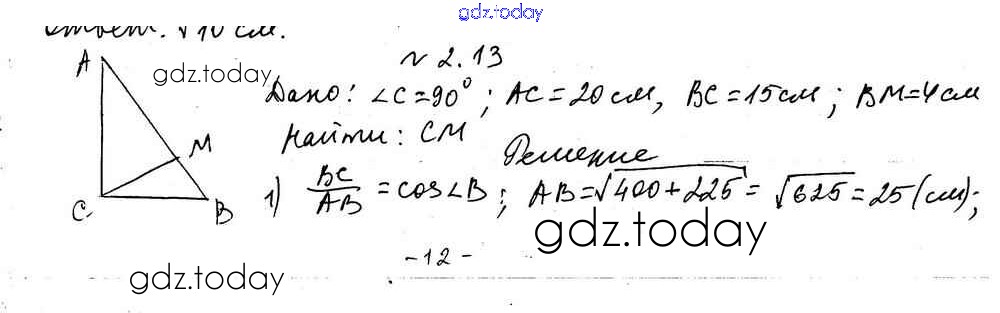 gdz.today
Ответ: √10 см.
N 2.13
A
gdz.today
Дано: ∠C=90°; AC=20 см, BC=15 см; BM=4 см
Найти: CM
M
Решение
1) BC/AB = cos∠B; AB=√400+225 = √625 = 25 (см);
C
B
gdz.today
-12-
gdz.today